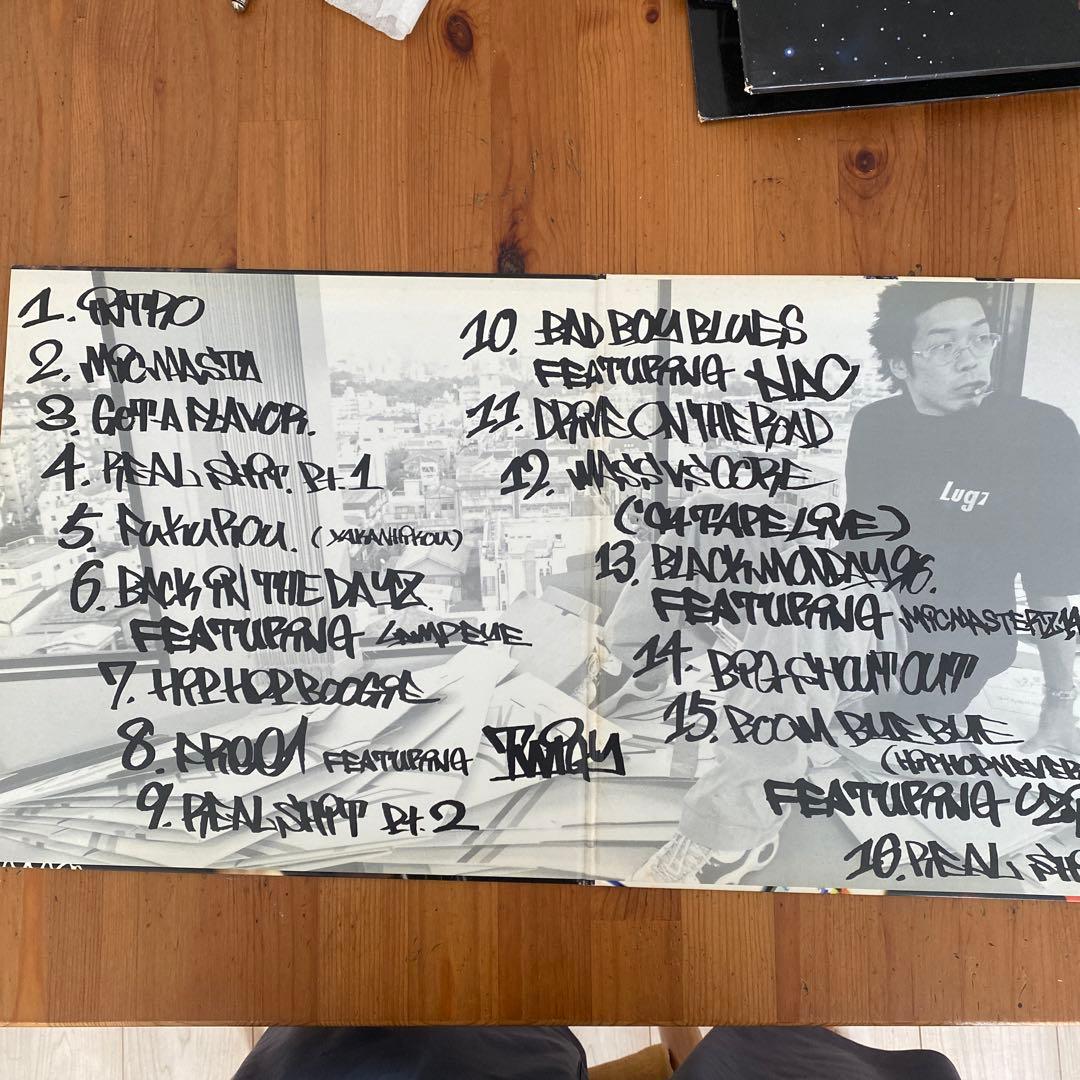 1. INTRO
2. MICMASTA
3. GET A FLAVOR.
4. REAL SHIT. Pt. 1
5. FUKUROU. (YAKANHIKOU)
6. BACK IN THE DAYZ.
FEATURING LAMPEYE
7. HIP HOP BOOGIE
8. FEATURING TWIGY
9. REAL SHIT Pt. 2
10. BAD BOY BLUES
FEATURING
11. DRIVE ON THE ROAD
12. MASS VS CORE
('94 TAPE LIVE)
13. BLACK MONDAY 96.
FEATURING
14. BIG SHOUT OUT
15. BOOM BYE BYE
(HIPHOP NEVER
FEATURING
16. REAL
Lugz